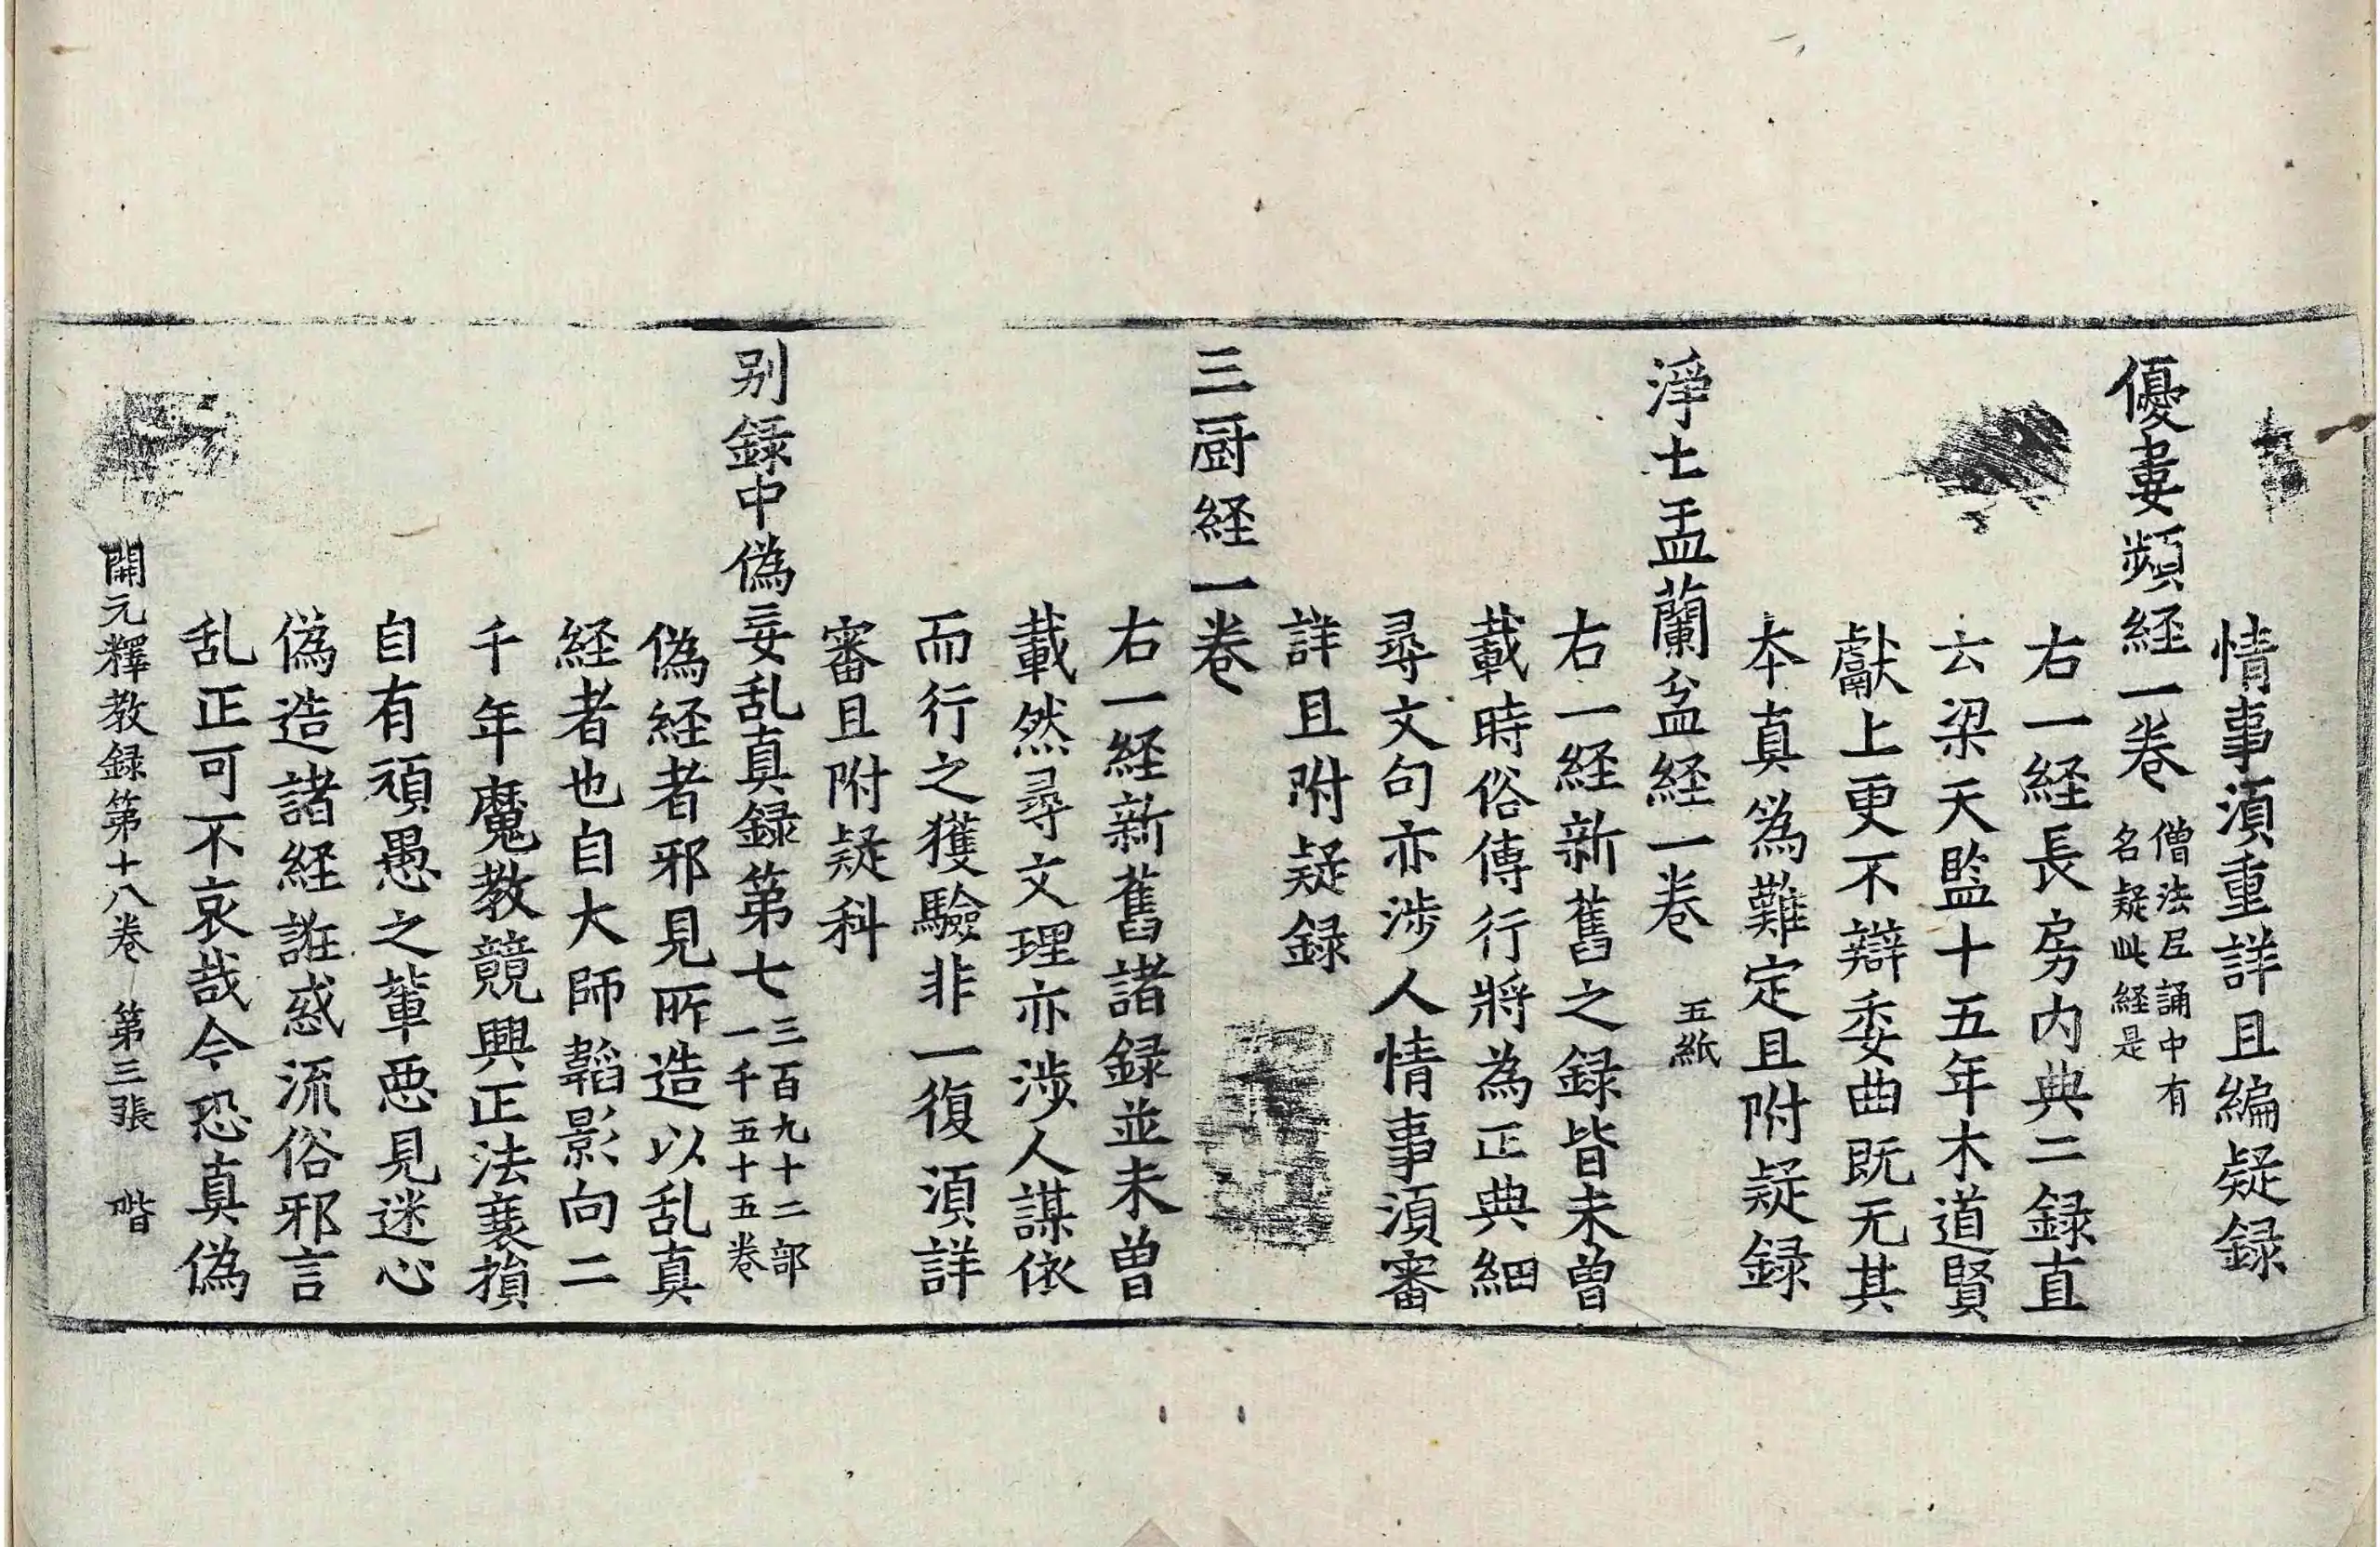 情事湏重詳且編疑録
優婁頻経一卷 僧法尼誦中有
名疑此経是
右一経長房内典二録直
云梁天監十五年木道賢
獻上更不辯委曲既无其
本真為難定且附疑録
淨土盂蘭盆経一卷 五紙
右一経新舊之録皆未曾
載時俗傳行將為正典細
尋文句亦渉人情事湏審
詳且附疑録
三厨経一卷
右一経新舊諸録並未曾
載然尋文理亦渉人謀依
而行之獲驗非一復湏詳
審且附疑科
别録中偽妄乱真録第七 三百九十二部
一千五十五卷
偽経者邪見所造以乱真
経者也自大師韜影向二
千年魔教競興正法衰損
自有頑愚之輩惡見迷心
偽造諸経誑惑流俗邪言
乱正可不哀哉今恐真偽
開元釋教録第十八卷 第三張 階